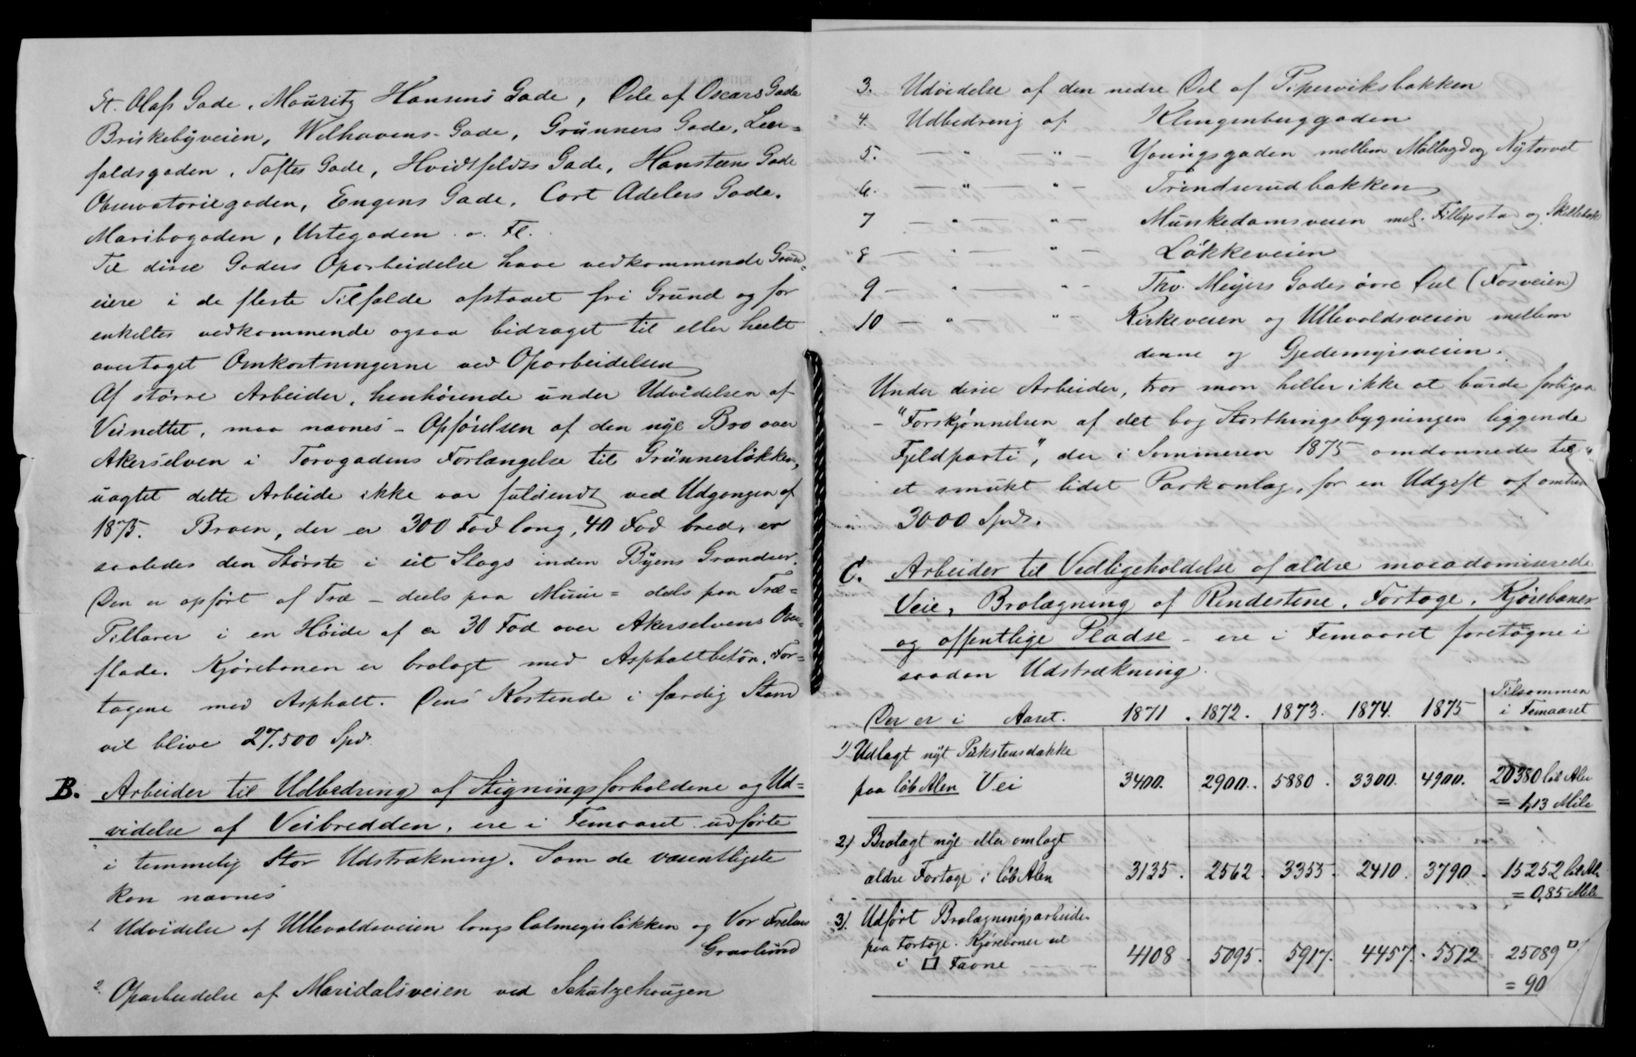 St. Olafs Gade, Mauritz Hansens Gade, Dele af Oscars Gade
Briskebyveien, Welhavens-Gade, Grünners Gade, Leer=
faldsgaden, Toftes Gade, Hvidtfeldts Gade, Hansteens Gade
Observatoriegaden, Engens Gade, Cort Adelers Gade,
Maribogaden, Urtegaden o. Fl.
Til disse Gaders Oparbeidelse have vedkommende Grund=
eiere i de fleste Tilfælde afstaaet fri Grund og for
enkeltes vedkommende ogsaa bidraget til eller heelt
overtaget Omkostningerne ved Oparbeidelsen
Af større Arbeider, henhørende under Udvidelsen af
Veinettet, maa nævnes – Opførelsen af den nye Bro over
Akerselven i Torvgadens Forlængelse til Grünnerløkken,
uagtet dette Arbeide ikke var fuldendt ved Udgangen af
1875. Broen, der er 300 Fod lang, 40 Fod bred, er
saaledes den Største i sit Slags inden Byens Grændser.
Den er opført af Træ – deels paa Muur= dels paa Træ=
Pillarer i en Høide af ca 30 Fod over Akerselvens Over=
flade. Kjørebanen er brolagt med Asphaltbetón, For=
togene med Asphalt. Dens Kostende i færdig Stand
vil blive 27,500 Spd.
B. Arbeider til Udbedring af Stigningsforholdene og Ud=
videlse af Veibredden, ere i Femaaret udførte
i temmelig Stor Udstrækning. Som de væsentligste
kan nævnes
1. Udvidelse af Ullevoldsveien langs Colmeyerløkken og Vor Frelsers
Gravlund
2. Oparbeidelse af Maridalsveien ved Schützehougen
3. Udvidelse af den nedre Del af Piperviksbakken
4. Udbedring af Klingenberggaden
5. — " — " — Youngsgaden mellem Møllergd og Nytorvet
6. — " — " — Trondserudbakken
7 — " — " — Munkedamsveien mel. Fillipstad og Skillebæk
8 — " — " — Løkkeveien
9 — " — " — Thv. Meyers Gades øvre Del (Fosveien)
10 — " " — Kirkeveien og Ullevoldsveien mellem
denne og Gjedemyrsveien.
Under disse Arbeider, tror man heller ikke at burde forbigaa
– "Forskjønnelsen af det bag Storthingsbygningen liggende
Fjeldparti", der i Sommeren 1875 omdannedes til
et smukt lidet Parkanlæg, for en Udgift af omtren
3000 Spd.
C. Arbeider til Vedligeholdelse af ældre macadamiserede
Veie, Brolægning af Rendestene, Fortoge, Kjørebaner
og offentlige Pladse – ere i Femaaret foretagne i
saadan Udstrækning.
Der er i Aaret. 1871. 1872. 1873. 1874. 1875 Tilsammen
i Femaaret
1) Udlagt nyt Pukstensdække
paa løb Alen Vei 3400. 2900. 5880. 3300. 4900. 20380 løb Alen
= 1,13 Mile
2) Brolagt nye eller omlagt
ældre Fortoge i løb Alen 3135. 2562. 3355. 2410. 3790. 15252 løb Al.
= 0,85 Mile
3) Udført Brolægningsarbeide
paa Fortoge. Kjørebaner etc
i □ Favne 4108. 5095. 5917. 4457. 5512 25089 □
= 90